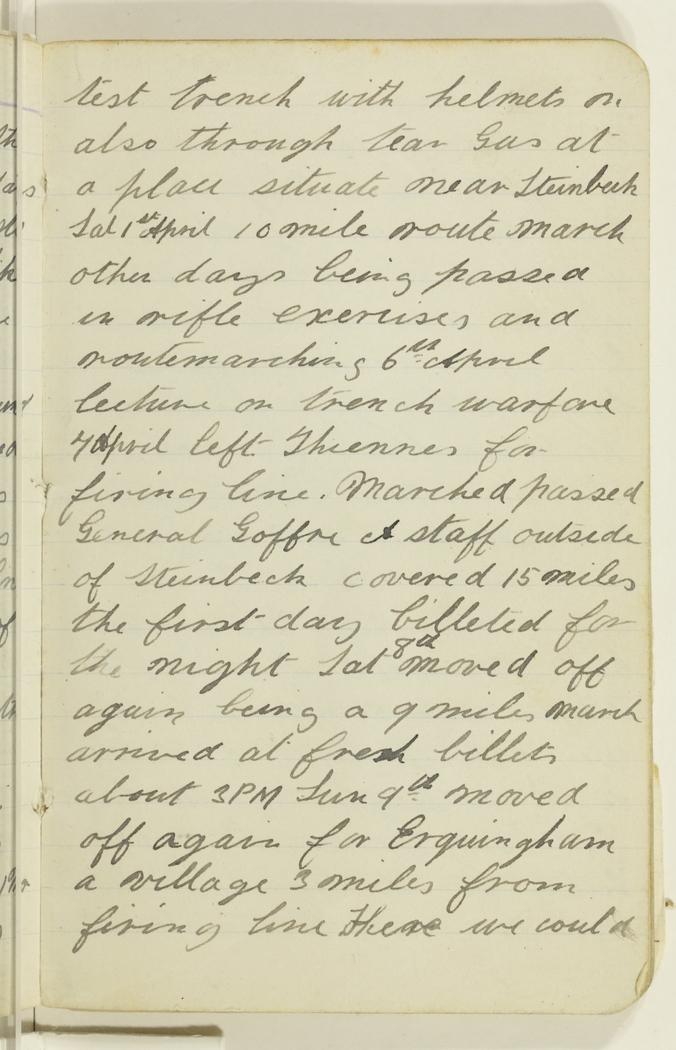 test trench with helmets on
also through tear Gas at
a place situate near Steinbeck
Sat 1st April 10 mile route march
other days being passed
in rifle exercises and
routemarching 6th April
lecture on trench warfare
7 April left Thiennes for
firing line. Marched passed
General Goffre & staff outside
of Steinbeck covered 15 miles
the first day billeted for
the night Sat 8th moved off
again being a 9 miles march
arrived at fresh billets
about 3PM Sun 9th moved
off again for Erquingham
a village 3 miles from
firing line There we could